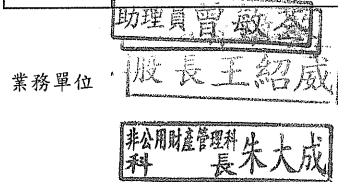 助理員曾敏
業務單位
股長王紹威
非公用財產管理科
科長朱大成